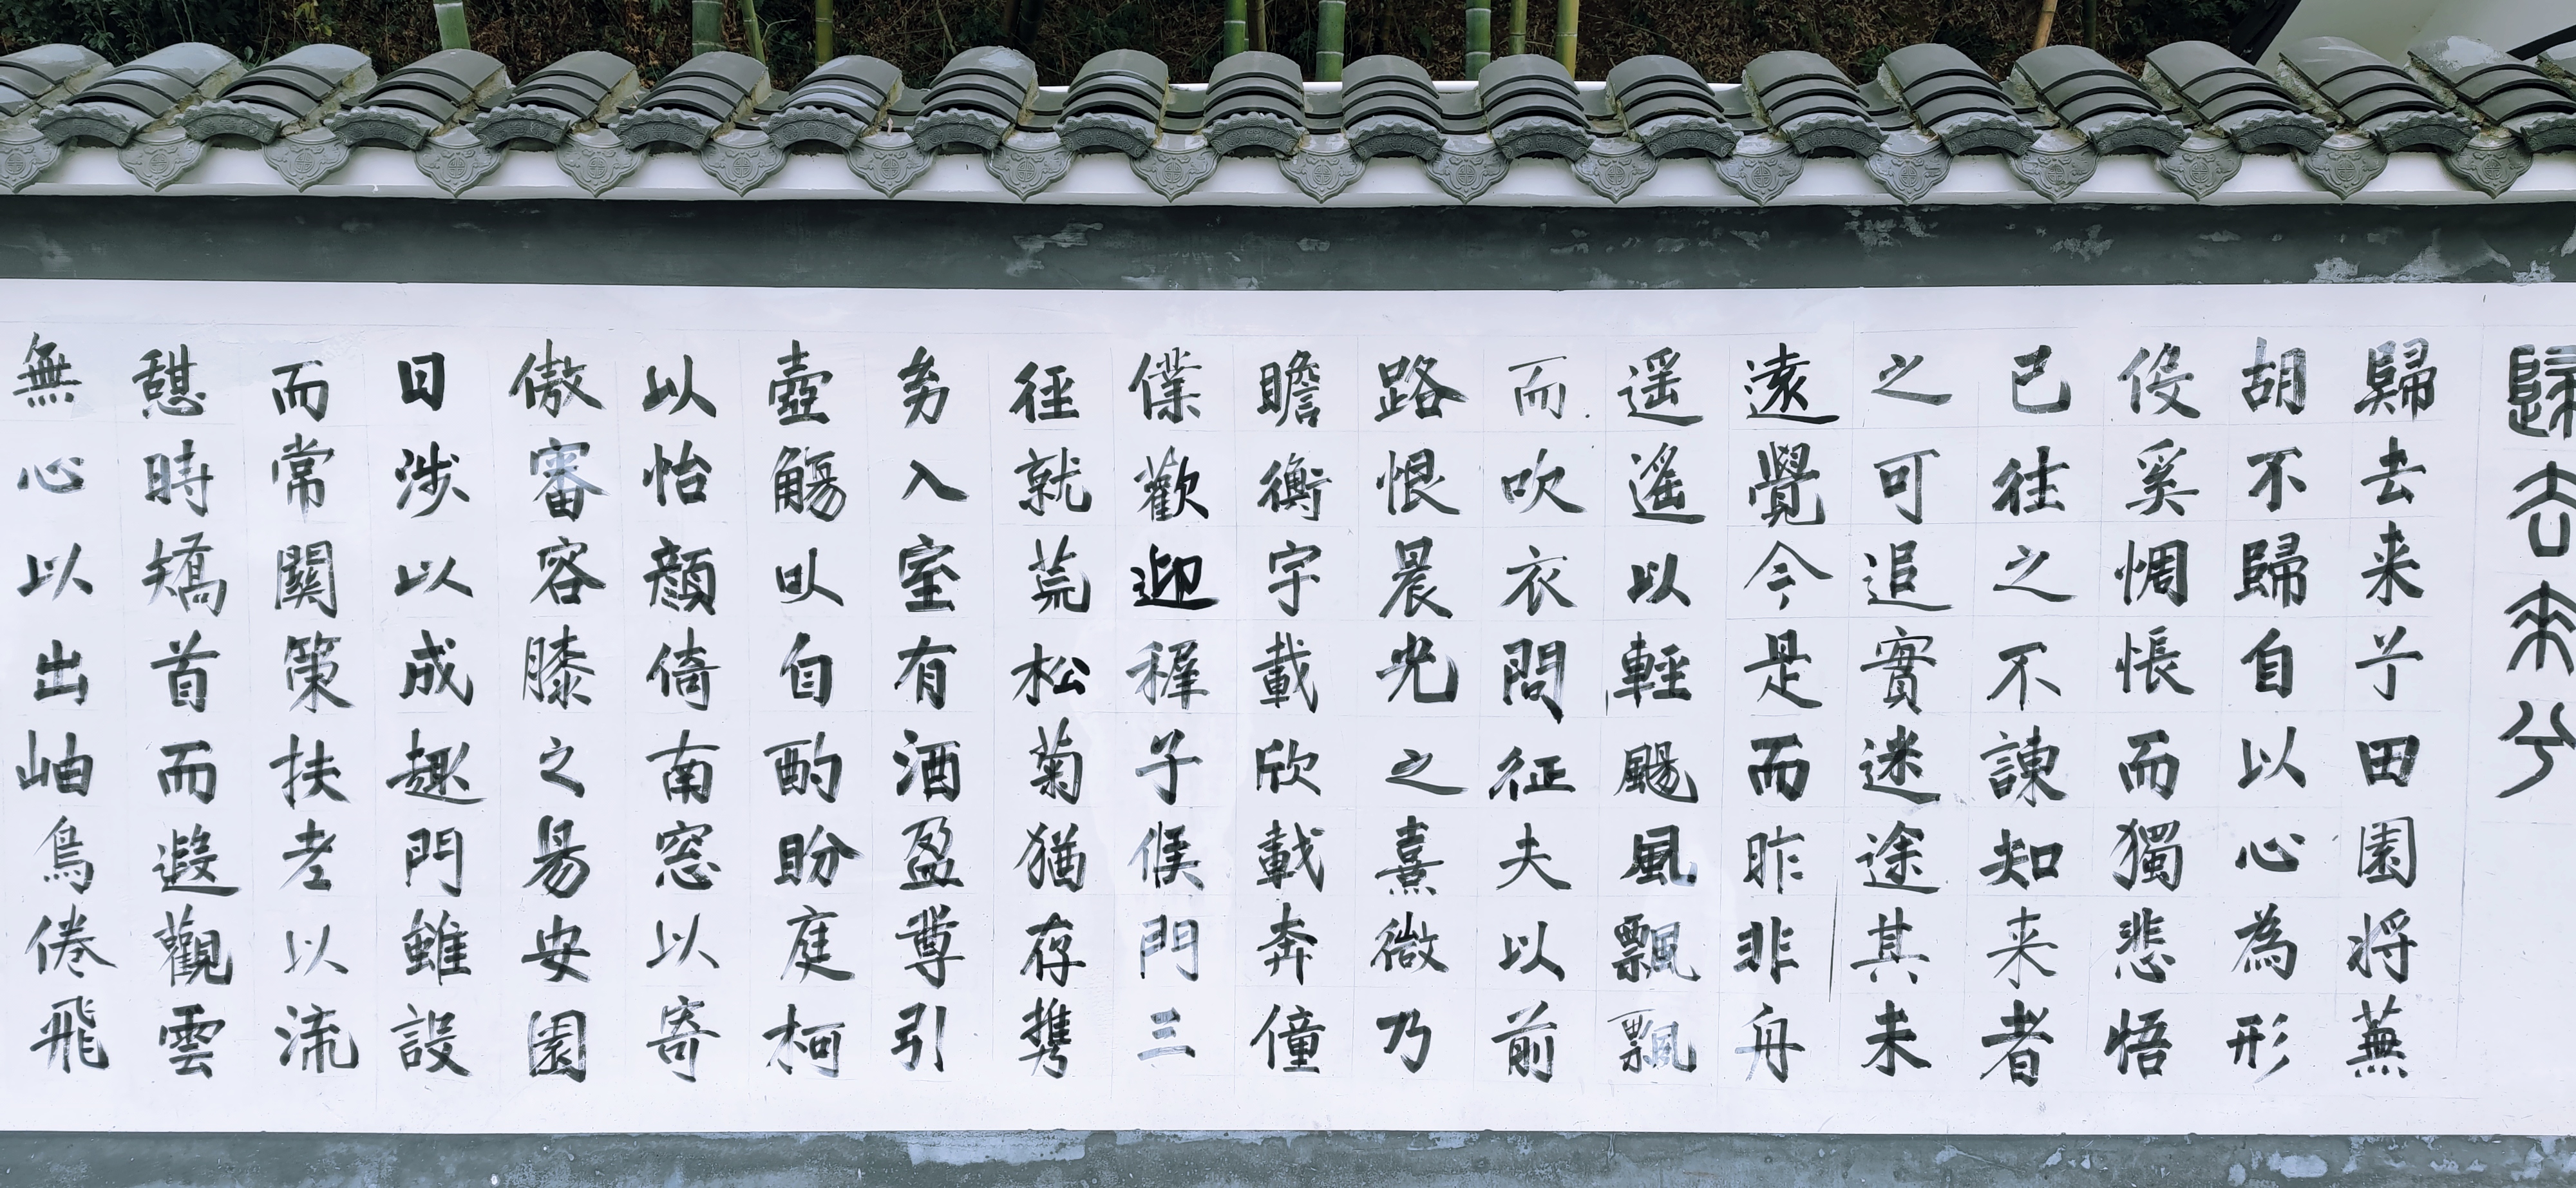 歸去來兮
歸去来兮田園将蕪
胡不歸自以心為形
役奚惆悵而獨悲悟
已往之不諫知来者
之可追實迷途其未
遠覺今是而昨非舟
遥遥以輕颺風飄飄
而吹衣問征夫以前
路恨晨光之熹微乃
瞻衡宇載欣載奔僮
僕歡迎稺子候門三
徑就荒松菊猶存携
幼入室有酒盈尊引
壺觴以自酌盼庭柯
以怡顔倚南窓以寄
傲審容膝之易安園
日涉以成趣門雖設
而常關策扶老以流
憇時矯首而遐觀雲
無心以出岫鳥倦飛